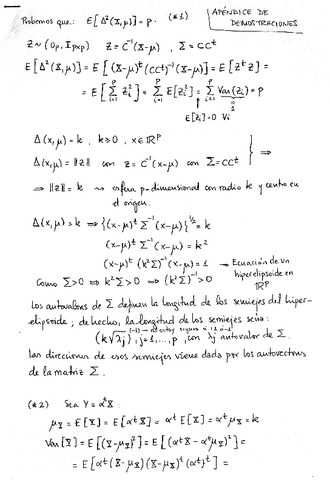 APÉNDICE DE
DEMOSTRACIONES
Probemos que: E[Δ²(X,μ)] = p. (*1)
Z ~ (0p, Ipxp) Z = C⁻¹(X-μ), Σ = CCᵗ
E[Δ²(X,μ)] = E[(X-μ)ᵗ(CCᵗ)⁻¹(X-μ)] = E[ZᵗZ] =
= E[Σᵢ₌₁ᵖ Zᵢ²] = Σᵢ₌₁ᵖ E[Zᵢ²] = Σᵢ₌₁ᵖ Var(Zᵢ) = p
1
E[Zᵢ]=0 ∀i
Δ(x,μ) = k, k≥0, x∈ℝᵖ
Δ(x,μ) = ‖z‖ con z = C⁻¹(x-μ) con Σ=CCᵗ } ⇒
⇒ ‖z‖ = k ⇝ esfera p-dimensional con radio k y centro en
el origen.
Δ(x,μ) = k ⇒ {(x-μ)ᵗ Σ⁻¹ (x-μ)}^{1/2} = k
(x-μ)ᵗ Σ⁻¹ (x-μ) = k²
(x-μ)ᵗ (k²Σ)⁻¹ (x-μ) = 1 → Ecuación de un
hiperelipsoide en
ℝᵖ
Como Σ>0 ⇒ k²Σ>0 ⇒ (k²Σ)⁻¹>0
Los autovalores de Σ definen la longitud de los semiejes del hiper-
elipsoide; de hecho, la longitud de los semiejes será:
(k√λⱼ), j=1,...,p, con λⱼ autovalor de Σ.
Las direcciones de esos semiejes viene dada por los autovectores
de la matriz Σ.
(*2) Sea Y = αᵗX:
μ_Y = E[Y] = E[αᵗX] = αᵗE[X] = αᵗμ_X = k
Var[Y] = E[(Y-μ_Y)²] = E[(αᵗX - αᵗμ_X)²] =
= E[αᵗ(X-μ_X)(X-μ_X)ᵗ(αᵗ)ᵗ] =